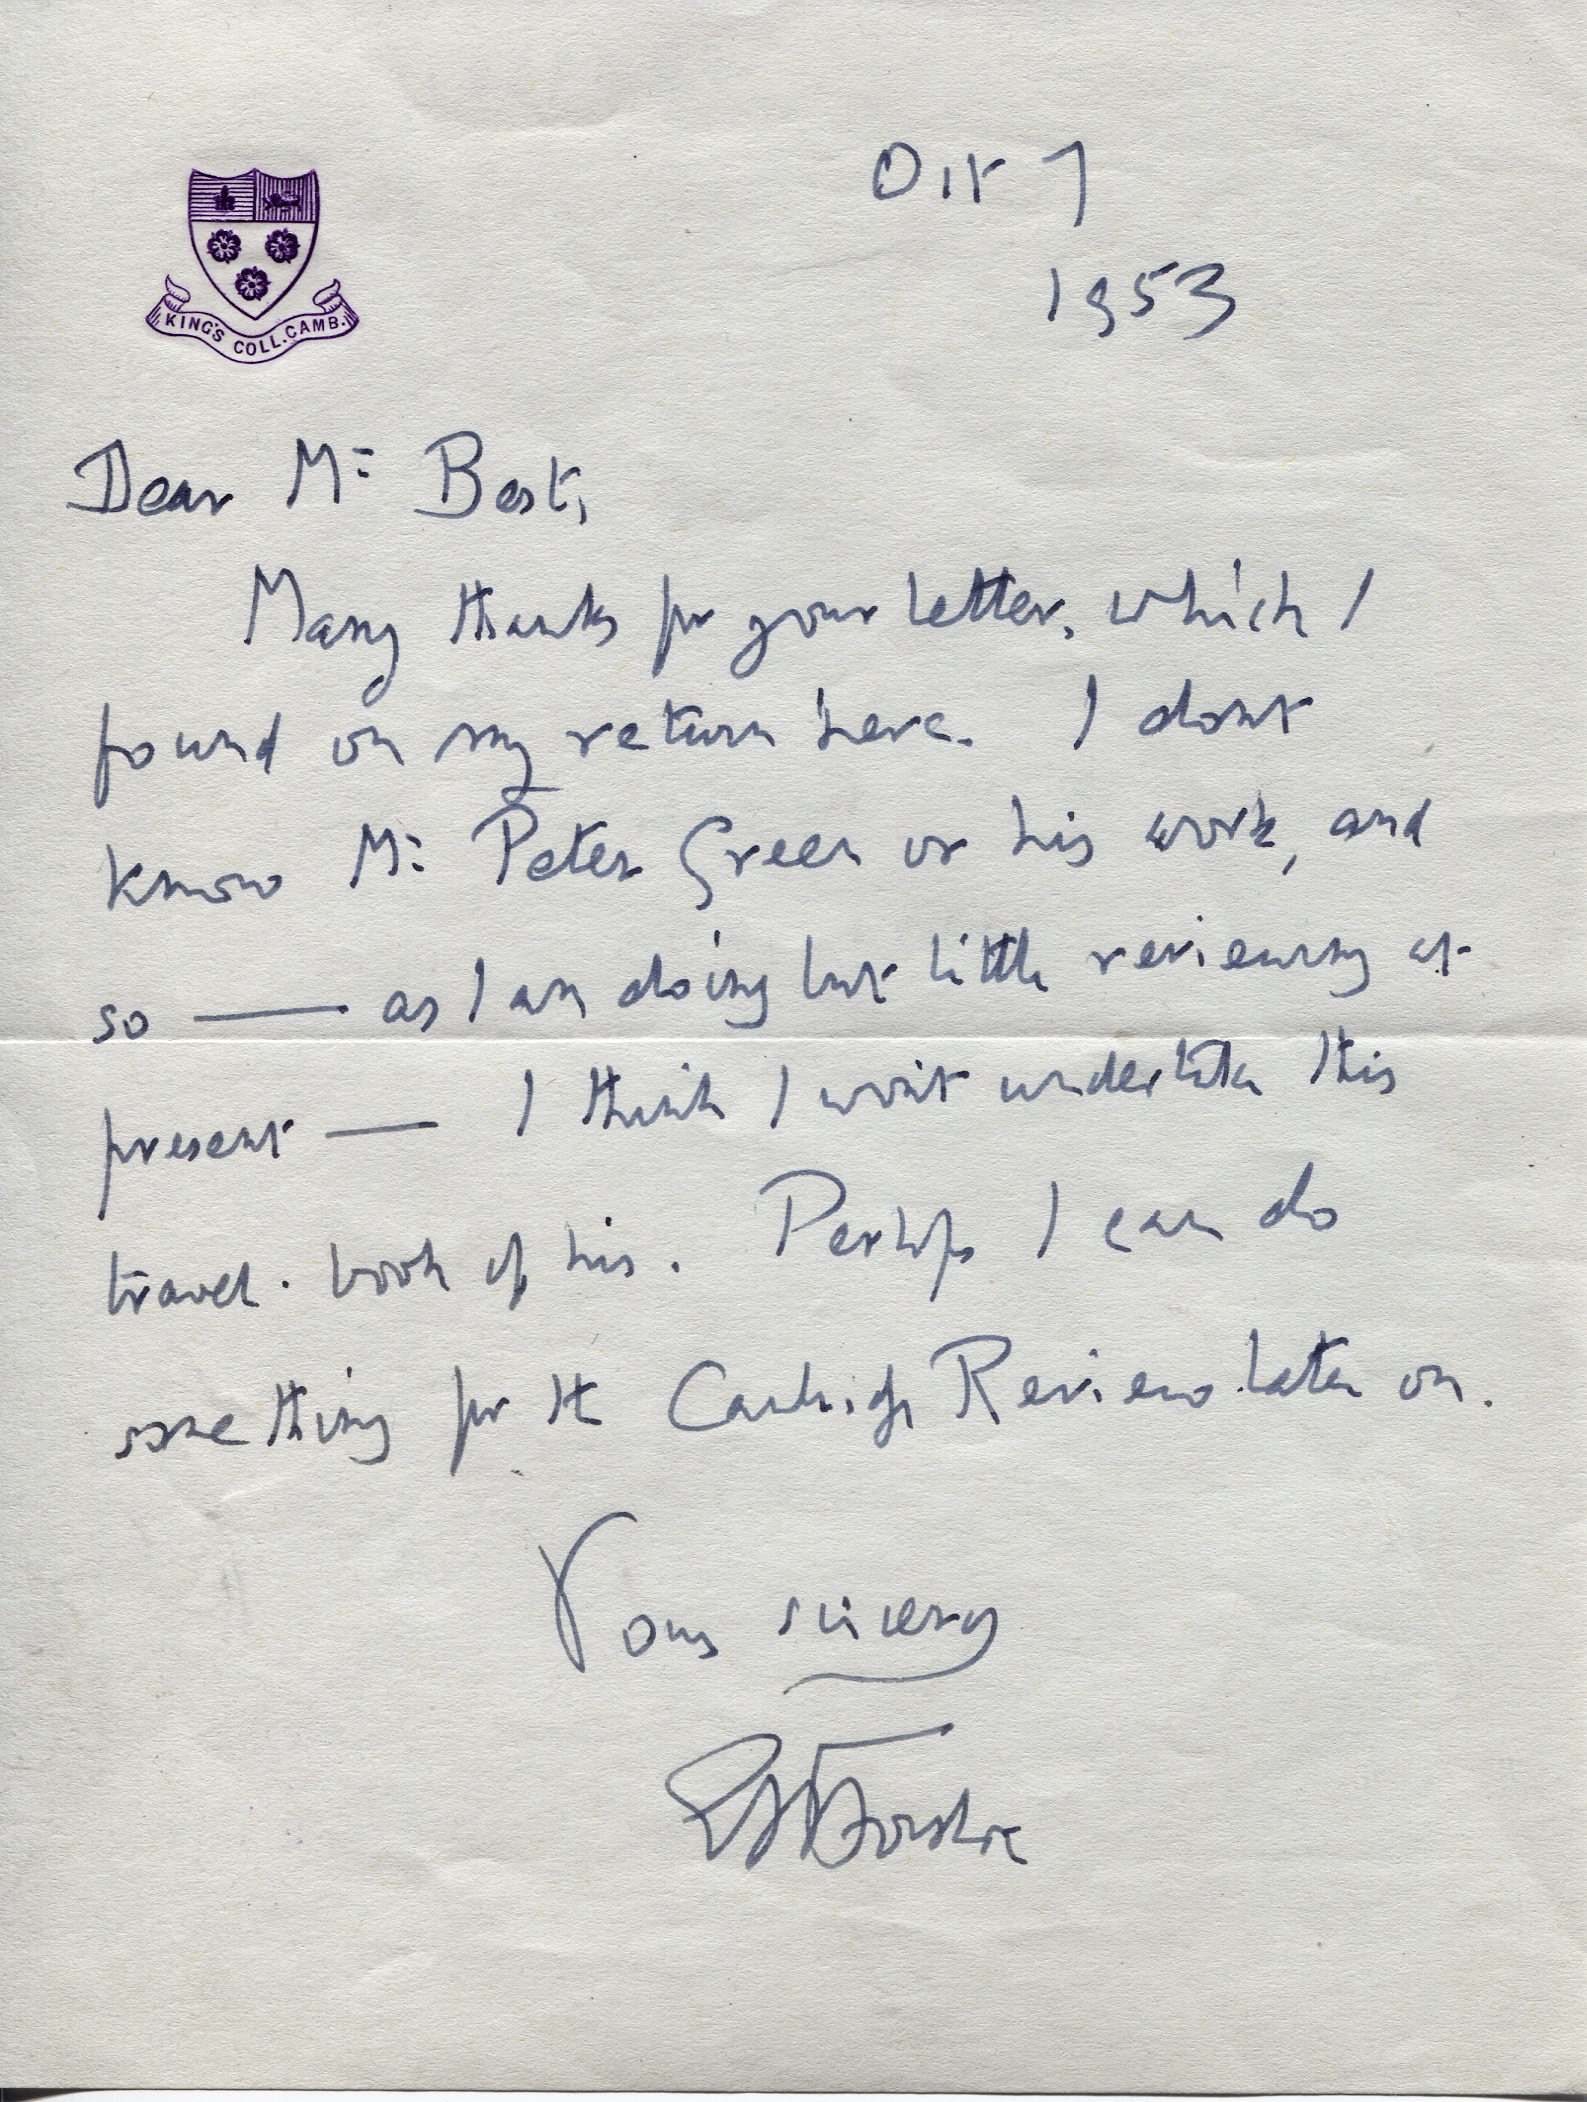 KING'S COLL. CAMB.
Oct 7
1953
Dear Mr Best,
Many thanks for your letter, which I
found on my return here. I dont
know Mr Peter Green or his work, and
so — as I am doing but little reviewing at
present — I think I won't undertake this
travel-book of his. Perhaps I can do
something for the Cambridge Review later on.
Yours sincerely
EM Forster